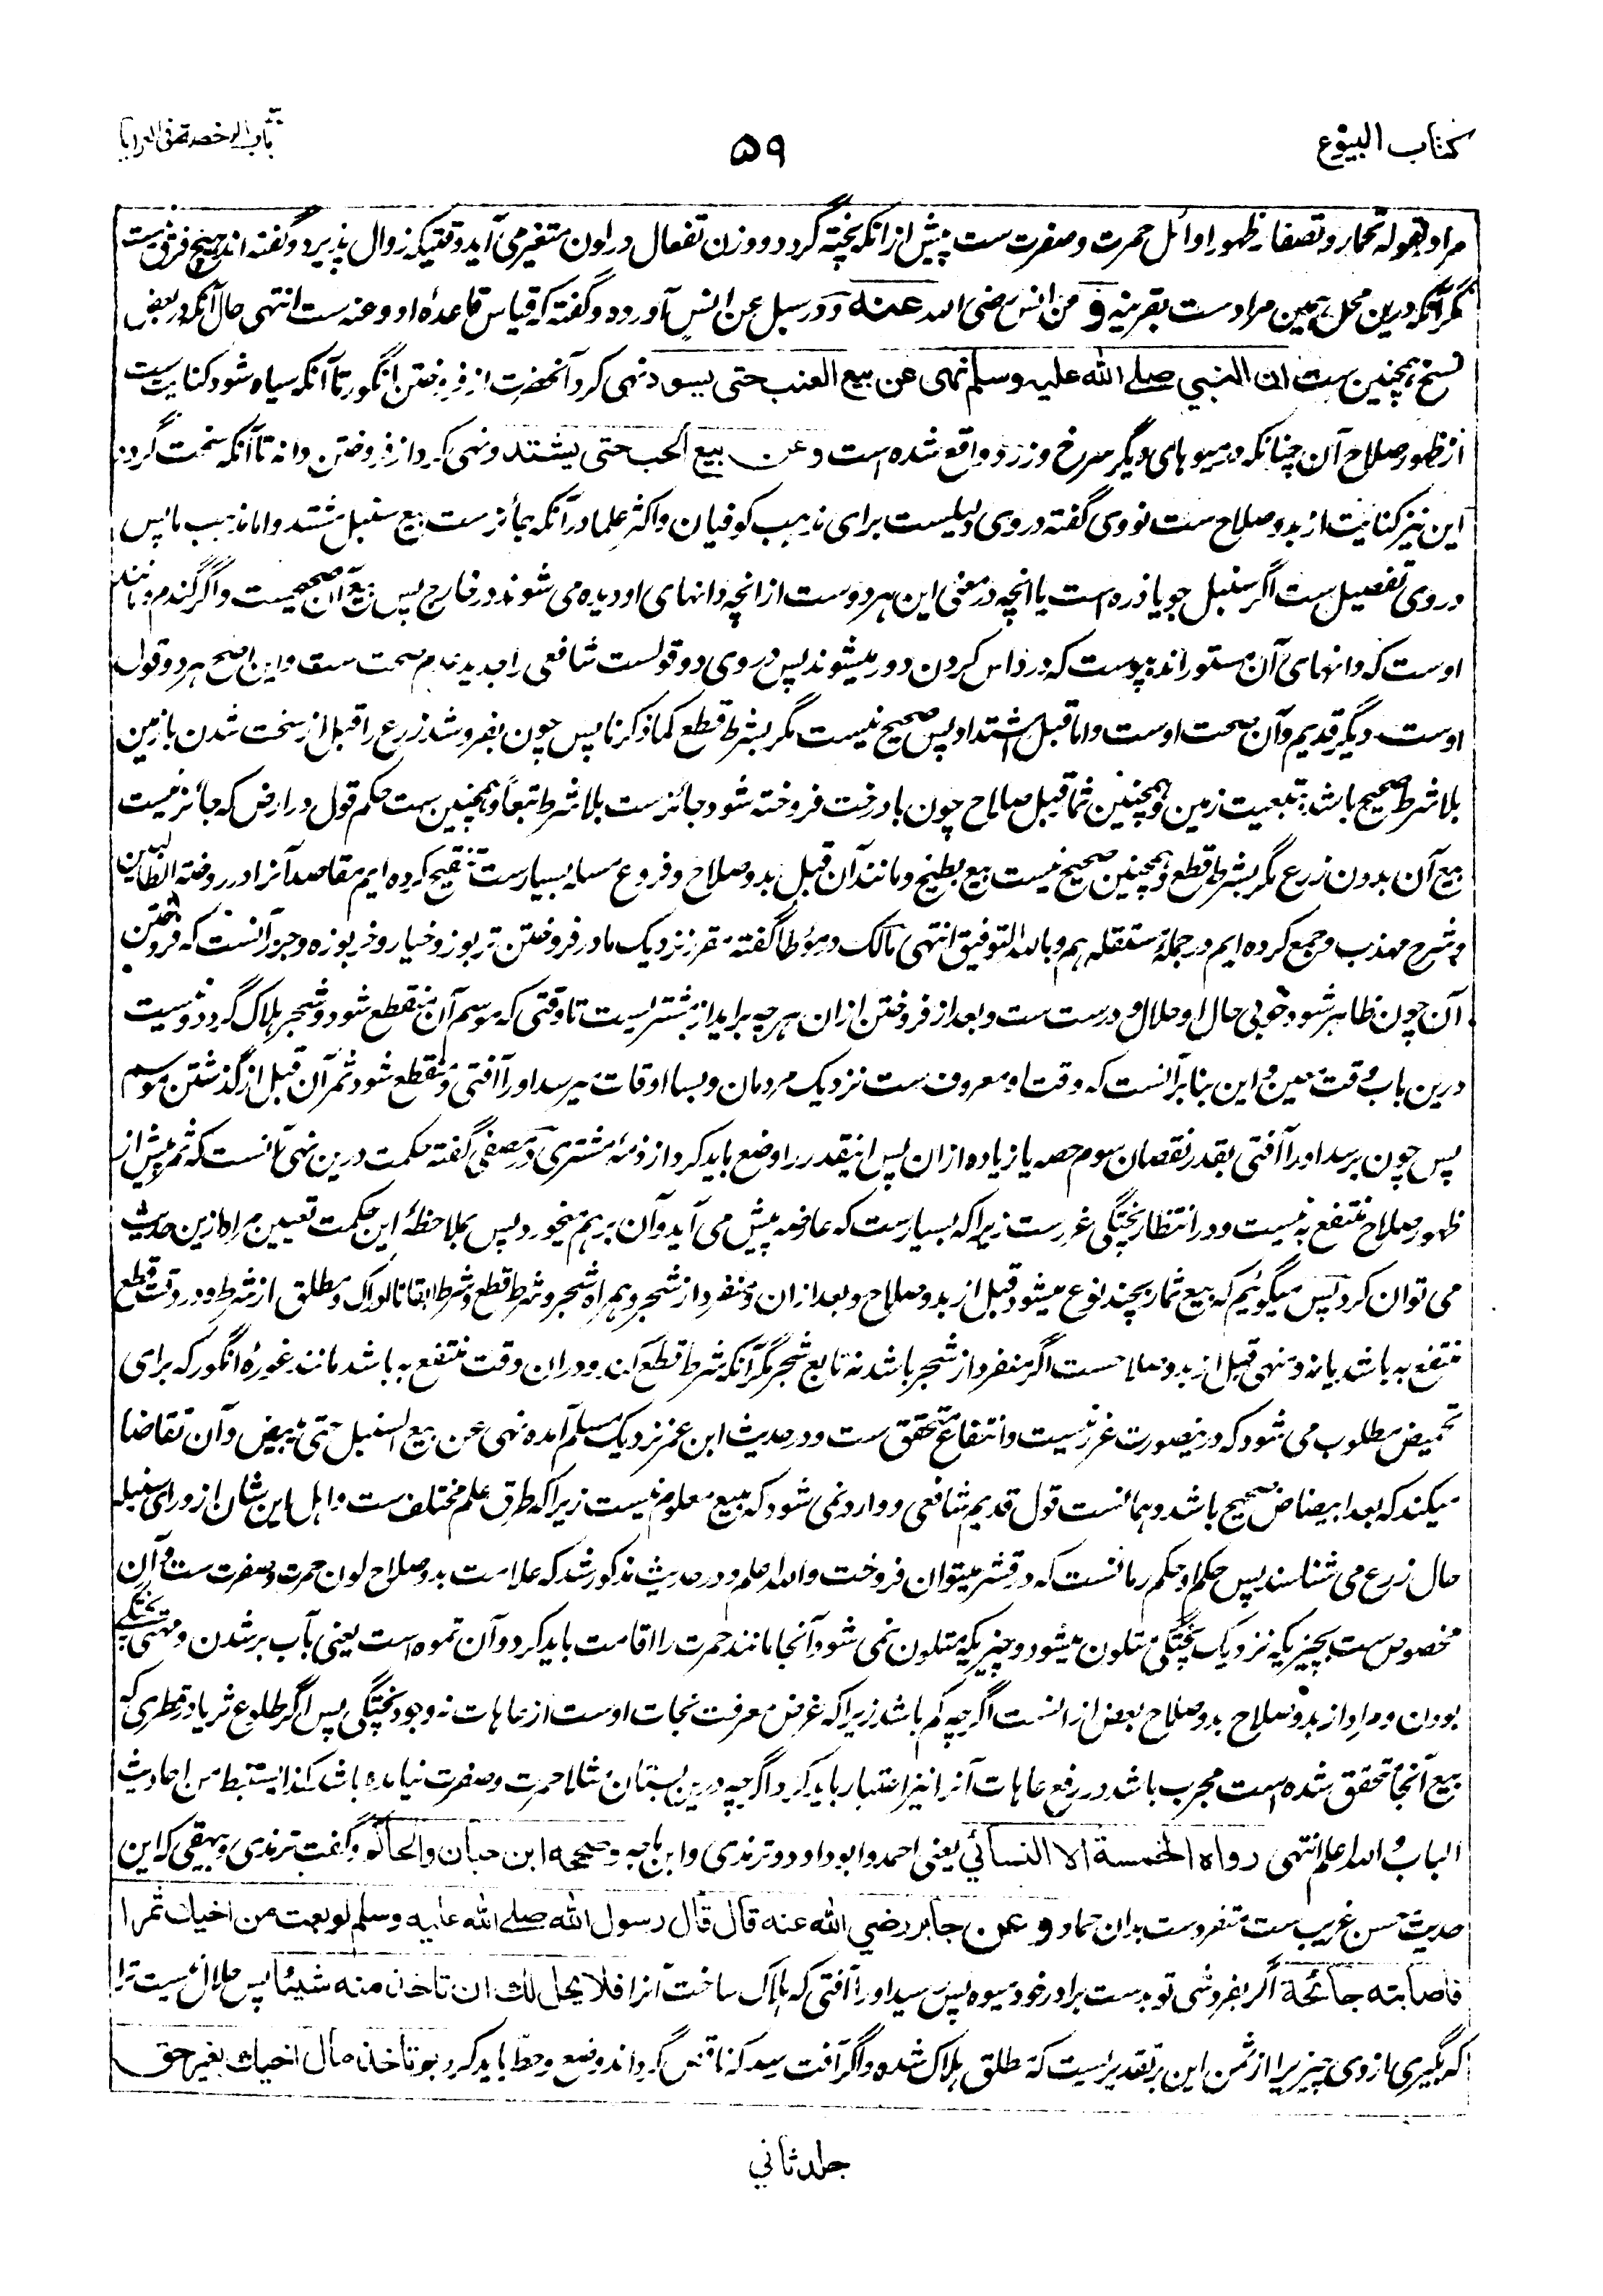 کتاب البیوع
۵۹
باب الرخصة فی العرایا
مراد بقوله تحمار وتصفار ظهور اوائل حمرت وصفرت ست پیش ازانکه پخته گردد ووزن تفعال در لون متغیر می آید وقتیکه زوال پذیرد وگفته اند هیچ فرق نیست
مگر آنکه درین محل همین مراد ست بقرینه و عن انس رضی الله عنه ودر سبل عن انس آورده وگفته که قیاس قاعده او وعنه ست انتهی حال آنکه در بعض
نسخ همچنین ست ان النبی صلی الله علیه وسلم نهی عن بیع العنب حتی یسود نهی کرد آنحضرت از فروختن انگور تا آنکه سیاه شود کنایت ست
از ظهور صلاح آن چنانکه در میوهای دیگر سرخ وزرد واقع شده است وعن بیع الحب حتی یشتد ونهی کرد از فروختن دانه تا آنکه سخت گردد
این نیز کنایت از بدو صلاح ست نووی گفته در وی دلیلست برای مذهب کوفیان واکثر علما در آنکه جائز ست بیع سنبل مشتد واما مذهب ما پس
در وی تفصیل ست اگر سنبل جو یا ذره است یا انچه در معنی این هر دو ست از انچه دانهای او دیده می شوند در خارج پس بیع آن صحیح ست واگر گندم ومانند
اوست که دانهای آن مستور اند به پوست که در داس کردن دور میشوند پس در وی دو قولست شافعی را جدید عدم صحت ست واین اصح هر دو قول
اوست دیگر قدیم وآن صحت اوست واما قبل اشتداد پس صحیح نیست مگر بشرط قطع کما ذکرنا پس چون بفروشد زرع را قبل از سخت شدن با زمین
بلا شرط صحیح باشد بتبعیت زمین وهمچنین ثمار قبل صلاح چون با درخت فروخته شود جائز ست بلا شرط تبعاً وهمچنین ست حکم قول در ارض که جائز نیست
بیع آن بدون زرع مگر بشرط قطع وهمچنین صحیح نیست بیع بطیخ ومانند آن قبل بدو صلاح وفروع مساله بسیار ست تنقیح کرده ایم مقاصد آنرا در روضة الطالبین
وشرح مهذب وجمع کرده ایم در جملهٔ مستقله هم وبالله التوفیق انتهی مالک در مؤطا گفته مقرر نزدیک ما در فروختن تربوز وخیار وخربوزه وجزر آنست که فروختن
آن چون ظاهر شود خوبی حال او حلال ودرست ست وبعد از فروختن ازان هر چه براید از مشتریست تا وقتی که موسم آن منقطع شود وشجر هلاک گردد ونیست
درین باب وقت معین واین بنابر آنست که وقت او معروف ست نزدیک مردمان وبسا اوقات میرسد اورا آفتی ومنقطع شود ثمر آن قبل از گذشتن موسم
پس چون برسد اورا آفتی بقدر نقصان سوم حصه یا زیاده ازان پس اینقدر را وضع باید کرد از ذمهٔ مشتری ودر مصفی گفته حکمت درین نهی آنست که ثمر پیش از
ظهور صلاح منتفع به نیست ودر انتظار پختگی غرر ست زیراکه بسیار ست که عاهه پیش می آید وآن برهم میخورد پس بملاحظهٔ این حکمت تعیین مراد ازین حدیث
می توان کرد پس میگوئیم که بیع ثمار بچند نوع میشود قبل از بدو صلاح وبعد ازان ومنفرد از شجر وهمراه شجر وشرط قطع وشرط ابقا تا ادراک ومطلق از شرط ودر وقت قطع
منتفع به باشد یا نه ومنهی قبل از بدو صلاحست اگر منفرد از شجر باشد نه تابع شجر مگر آنکه شرط قطع کند ودران وقت منتفع به باشد مانند غورهٔ انگور که برای
تحمیض مطلوب می شود که درینصورت غرر نیست وانتفاع متحقق ست ودر حدیث ابن عمر نزدیک مسلم آمده نهی عن بیع السنبل حتی یبیض وآن تقاضا
میکند که بعد ابیضاض صحیح باشد وهمانست قول قدیم شافعی ووارد نمی شود که مبیع معلوم نیست زیراکه طرق علم مختلف ست واهل این شان از ورای سنبله
حال زرع می شناسند پس حکم او حکم رمانست که در قشر میتوان فروخت والله اعلم ودر حدیث مذکور شد که علامت بدو صلاح لون حمرت وصفرت ست وآن
مخصوص ست بچیزیکه نزدیک پختگی متلون میشود وچیزیکه متلون نمی شود آنجا مانند حمرت را اقامت باید کرد وآن تموه است یعنی بآب پر شدن ومنتهی بپختگی
بودن ومراد از بدو صلاح بدو صلاح بعض ازانست اگرچه کم باشد زیراکه غرض معرفت نجات اوست از عاهات نه وجود پختگی پس اگر طلوع ثریا در قطری که
بیع آنجا متحقق شده است مجرب باشد در رفع عاهات آنرا نیز اعتبار باید کرد اگرچه درین بستان مثلا حمرت وصفرت نیامده باشد کذا یستنبط من احادیث
الباب والله اعلم انتهی رواه الخمسة الا النسائی یعنی احمد وابو داود وترمذی وابن ماجه وصححه ابن حبان والحاکم وگفت ترمذی وبیهقی که این
حدیث حسن غریب ست متفرد ست بدان حماد وعن جابر رضی الله عنه قال قال رسول الله صلی الله علیه وسلم لو بعت من اخیك ثمرا
فاصابته جائحة اگر بفروشی تو بدست برادر خود میوه پس رسید اورا آفتی که هلاک ساخت آنرا فلا یحل لك ان تاخذ منه شیئا پس حلال نیست ترا
که بگیری از وی چیزیرا از ثمن این بر تقدیریست که مطلق هلاک شده واگر آفت رسید که ناقص گرداند وضع وحط باید کرد بم تاخذ مال اخیك بغیر حق
جلد ثانی